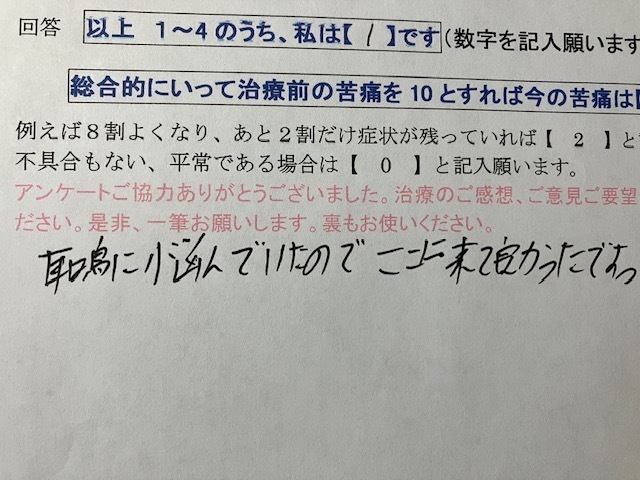 回答 以上 1～4のうち、私は【 1 】です(数字を記入願います
総合的にいって治療前の苦痛を10とすれば今の苦痛は【
例えば8割よくなり、あと2割だけ症状が残っていれば【 2 】と
不具合もない、平常である場合は【 0 】と記入願います。
アンケートご協力ありがとうございました。治療のご感想、ご意見ご要望
ださい。是非、一筆お願いします。裏もお使いください。
耳鳴に悩んでいたので ここに来て良かったです。